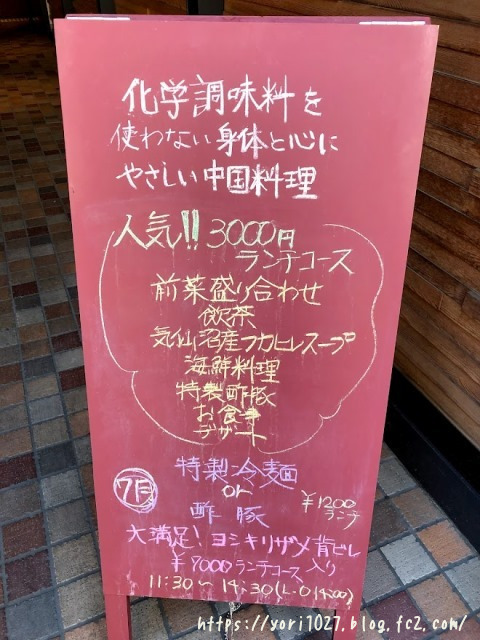 化学調味料を
使わない身体と心に
やさしい中国料理
人気!! 3000円
ランチコース
前菜盛り合わせ
飲茶
気仙沼産フカヒレスープ
海鮮料理
特製酢豚
お食事
デザート
特製冷麺
7月
or
酢豚
¥1200
ランチ
大満足！ヨシキリザメ背ビレ
入り
¥7000ランチコース
11:30〜14:30(L.O14:00)
https://yori1027.blog.fc2.com/